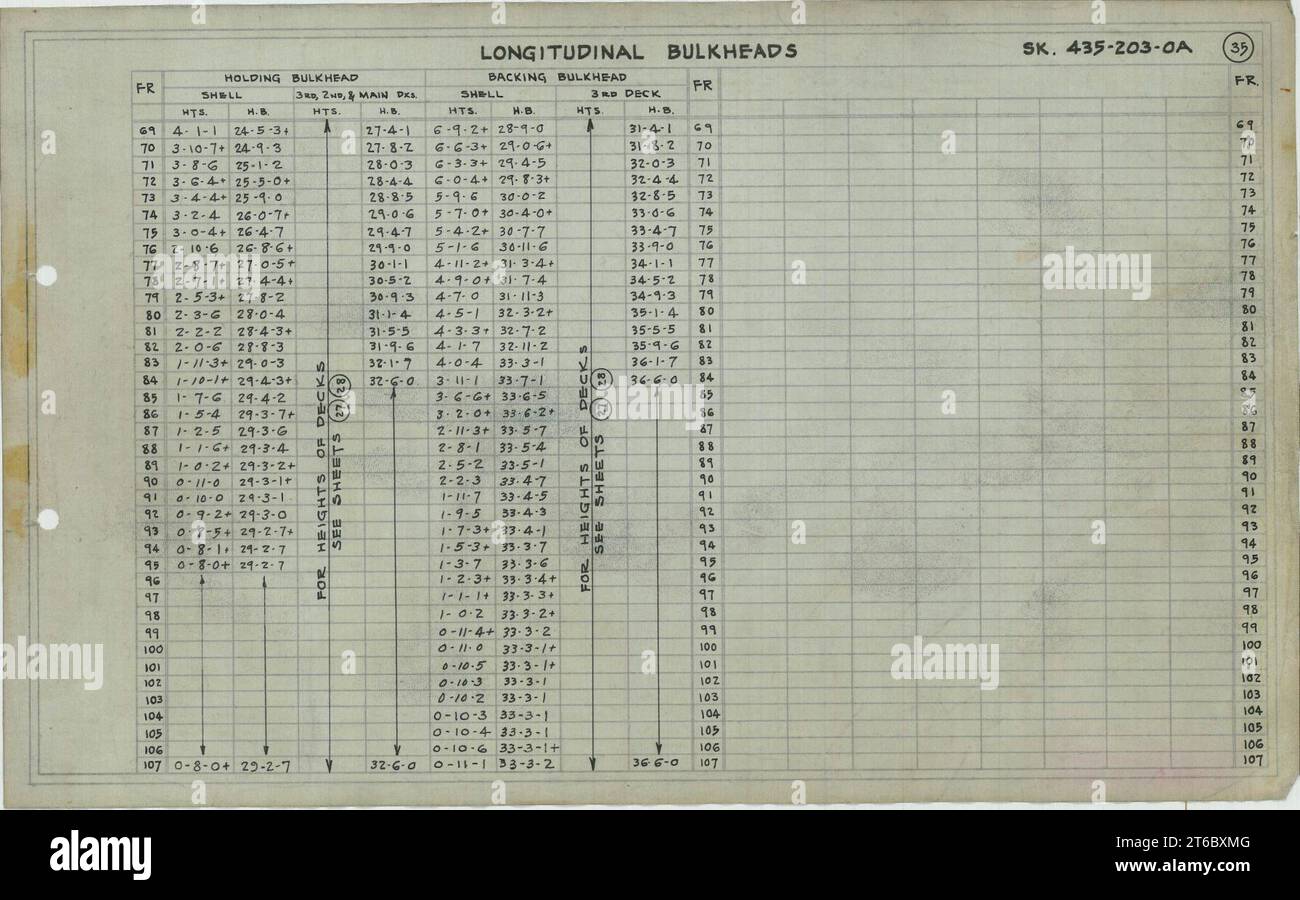 LONGITUDINAL BULKHEADS SK. 435-203-0A 35
FR HOLDING BULKHEAD BACKING BULKHEAD FR FR.
SHELL 3RD, 2ND, & MAIN DKS. SHELL 3RD DECK
HTS. H.B. HTS. H.B. HTS. H.B. HTS. H.B.
69 4-1-1 24-5-3+ 27-4-1 6-9-2+ 28-9-0 31-4-1 69 69
70 3-10-7+ 24-9-3 27-8-2 6-6-3+ 29-0-6+ 31-8-2 70 70
71 3-8-6 25-1-2 28-0-3 6-3-3+ 29-4-5 32-0-3 71 71
72 3-6-4+ 25-5-0+ 28-4-4 6-0-4+ 29-8-3+ 32-4-4 72 72
73 3-4-4+ 25-9-0 28-8-5 5-9-6 30-0-2 32-8-5 73 73
74 3-2-4 26-0-7+ 29-0-6 5-7-0+ 30-4-0+ 33-0-6 74 74
75 3-0-4+ 26-4-7 29-4-7 5-4-2+ 30-7-7 33-4-7 75 75
76 2-10-6 26-8-6+ 29-9-0 5-1-6 30-11-6 33-9-0 76 76
77 2-8-7+ 27-0-5+ 30-1-1 4-11-2+ 31-3-4+ 34-1-1 77 77
78 2-7-1+ 27-4-4+ 30-5-2 4-9-0+ 31-7-4 34-5-2 78 78
79 2-5-3+ 27-8-2 30-9-3 4-7-0 31-11-3 34-9-3 79 79
80 2-3-6 28-0-4 31-1-4 4-5-1 32-3-2+ 35-1-4 80 80
81 2-2-2 28-4-3+ 31-5-5 4-3-3+ 32-7-2 35-5-5 81 81
82 2-0-6 28-8-3 31-9-6 4-1-7 32-11-2 35-9-6 82 82
83 1-11-3+ 29-0-3 32-1-7 4-0-4 33-3-1 36-1-7 83 83
84 1-10-1+ 29-4-3+ 32-6-0 3-11-1 33-7-1 36-6-0 84 84
85 1-7-6 29-4-2 3-6-6+ 33-6-5 85 85
86 1-5-4 29-3-7+ 3-2-0+ 33-6-2+ 86 86
87 1-2-5 29-3-6 2-11-3+ 33-5-7 87 87
88 1-1-6+ 29-3-4 2-8-1 33-5-4 88 88
89 1-0-2+ 29-3-2+ 2-5-2 33-5-1 89 89
90 0-11-0 29-3-1+ 2-2-3 33-4-7 90 90
91 0-10-0 29-3-1 1-11-7 33-4-5 91 91
92 0-9-2+ 29-3-0 1-9-5 33-4-3 92 92
93 0-8-5+ 29-2-7+ 1-7-3+ 33-4-1 93 93
94 0-8-1+ 29-2-7 1-5-3+ 33-3-7 94 94
95 0-8-0+ 29-2-7 1-3-7 33-3-6 95 95
96 1-2-3+ 33-3-4+ 96 96
97 1-1-1+ 33-3-3+ 97 97
98 1-0-2 33-3-2+ 98 98
99 0-11-4+ 33-3-2 99 99
100 0-11-0 33-3-1+ 100 100
101 0-10-5 33-3-1+ 101 101
102 0-10-3 33-3-1 102 102
103 0-10-2 33-3-1 103 103
104 0-10-3 33-3-1 104 104
105 0-10-4 33-3-1 105 105
106 0-10-6 33-3-1+ 106 106
107 0-8-0+ 29-2-7 32-6-0 0-11-1 33-3-2 36-6-0 107 107
FOR HEIGHTS OF DECKS
SEE SHEETS 27 28
FOR HEIGHTS OF DECKS
SEE SHEETS 27 28
alamy
alamy
alamy
alamy
alamy
Image ID: 2T6BXMG
www.alamy.com